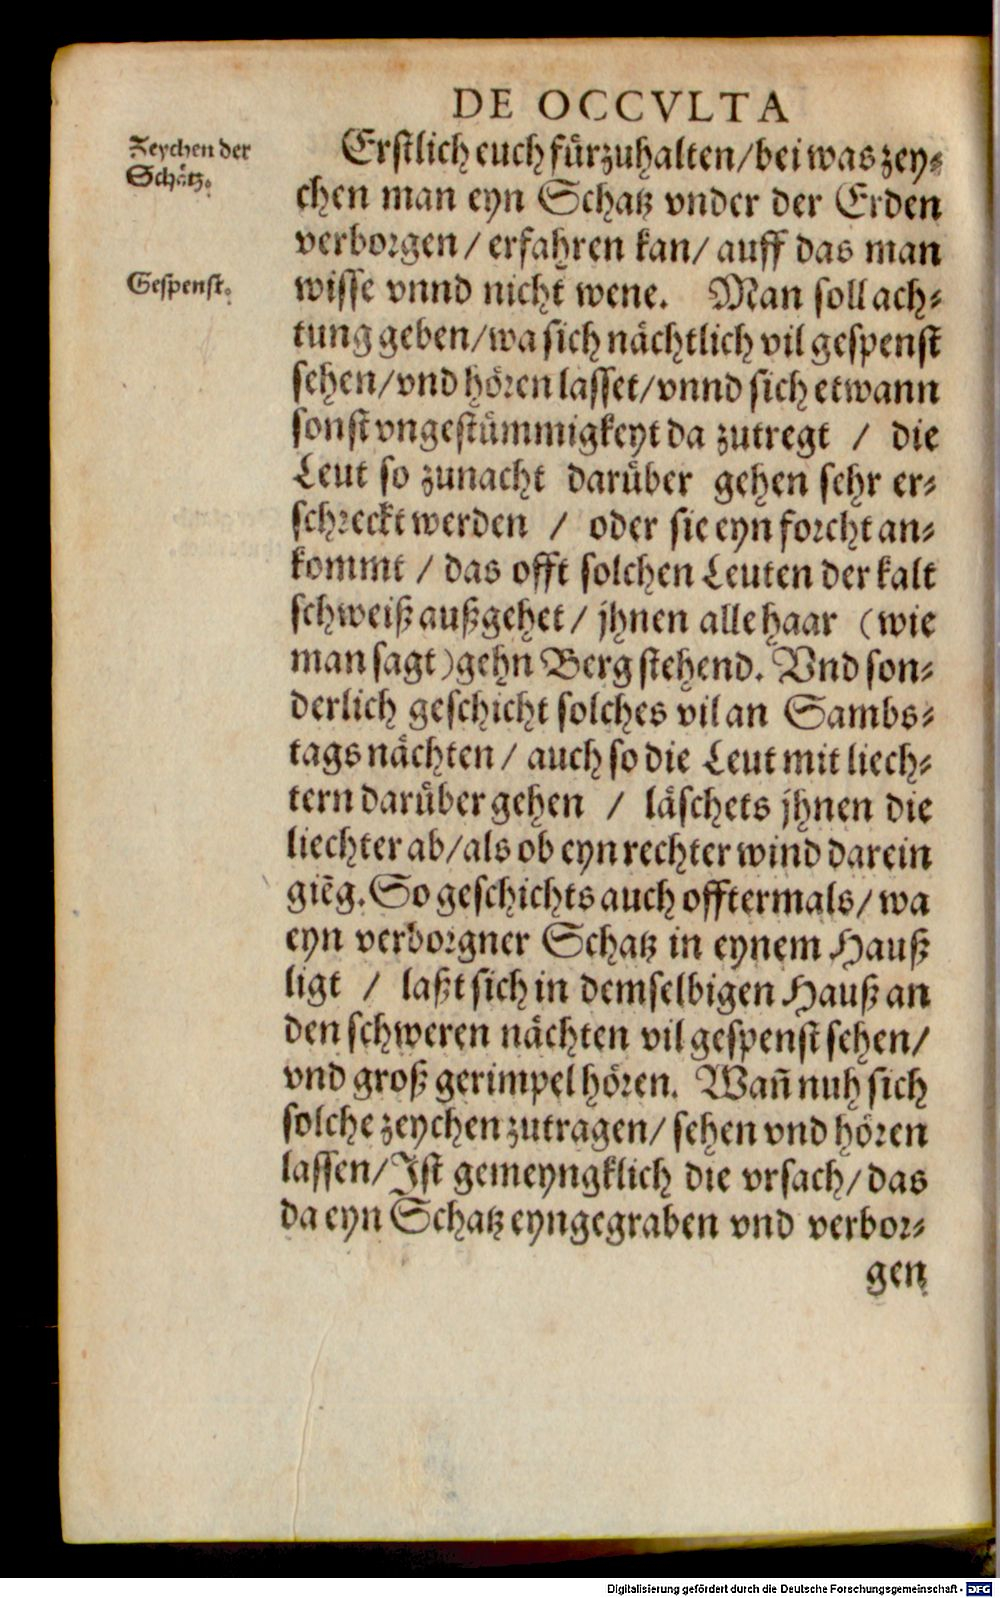 DE OCCVLTA
Zeychen der
Schätz.
Erstlich euch fürzuhalten/bei was zey⸗
chen man eyn Schatz vnder der Erden
verborgen/ erfahren kan/ auff das man
Gespenst.
wisse vnnd nicht wene. Man soll ach⸗
tung geben/wa sich nächtlich vil gespenst
sehen/vnd hören lasset/vnnd sich etwann
sonst vngestümmigkeyt da zutregt / die
Leut so zunacht darüber gehen sehr er⸗
schreckt werden / oder sie eyn forcht an⸗
kommt / das offt solchen Leuten der kalt
schweiß außgehet/ jhnen alle haar (wie
man sagt) gehn Berg stehend. Vnd son⸗
derlich geschicht solches vil an Sambs⸗
tags nächten/ auch so die Leut mit liech⸗
tern darüber gehen / läschets jhnen die
liechter ab/als ob eyn rechter wind darein
giẽg. So geschichts auch offtermals/ wa
eyn verborgner Schatz in eynem Hauß
ligt / laßt sich in demselbigen Hauß an
den schweren nächten vil gespenst sehen/
vnd groß gerimpel hören. Wañ nuh sich
solche zeychen zutragen/ sehen vnd hören
lassen/Ist gemeyngklich die vrsach/das
da eyn Schatz eyngegraben vnd verbor⸗
gen
Digitalisierung gefördert durch die Deutsche Forschungsgemeinschaft - DFG